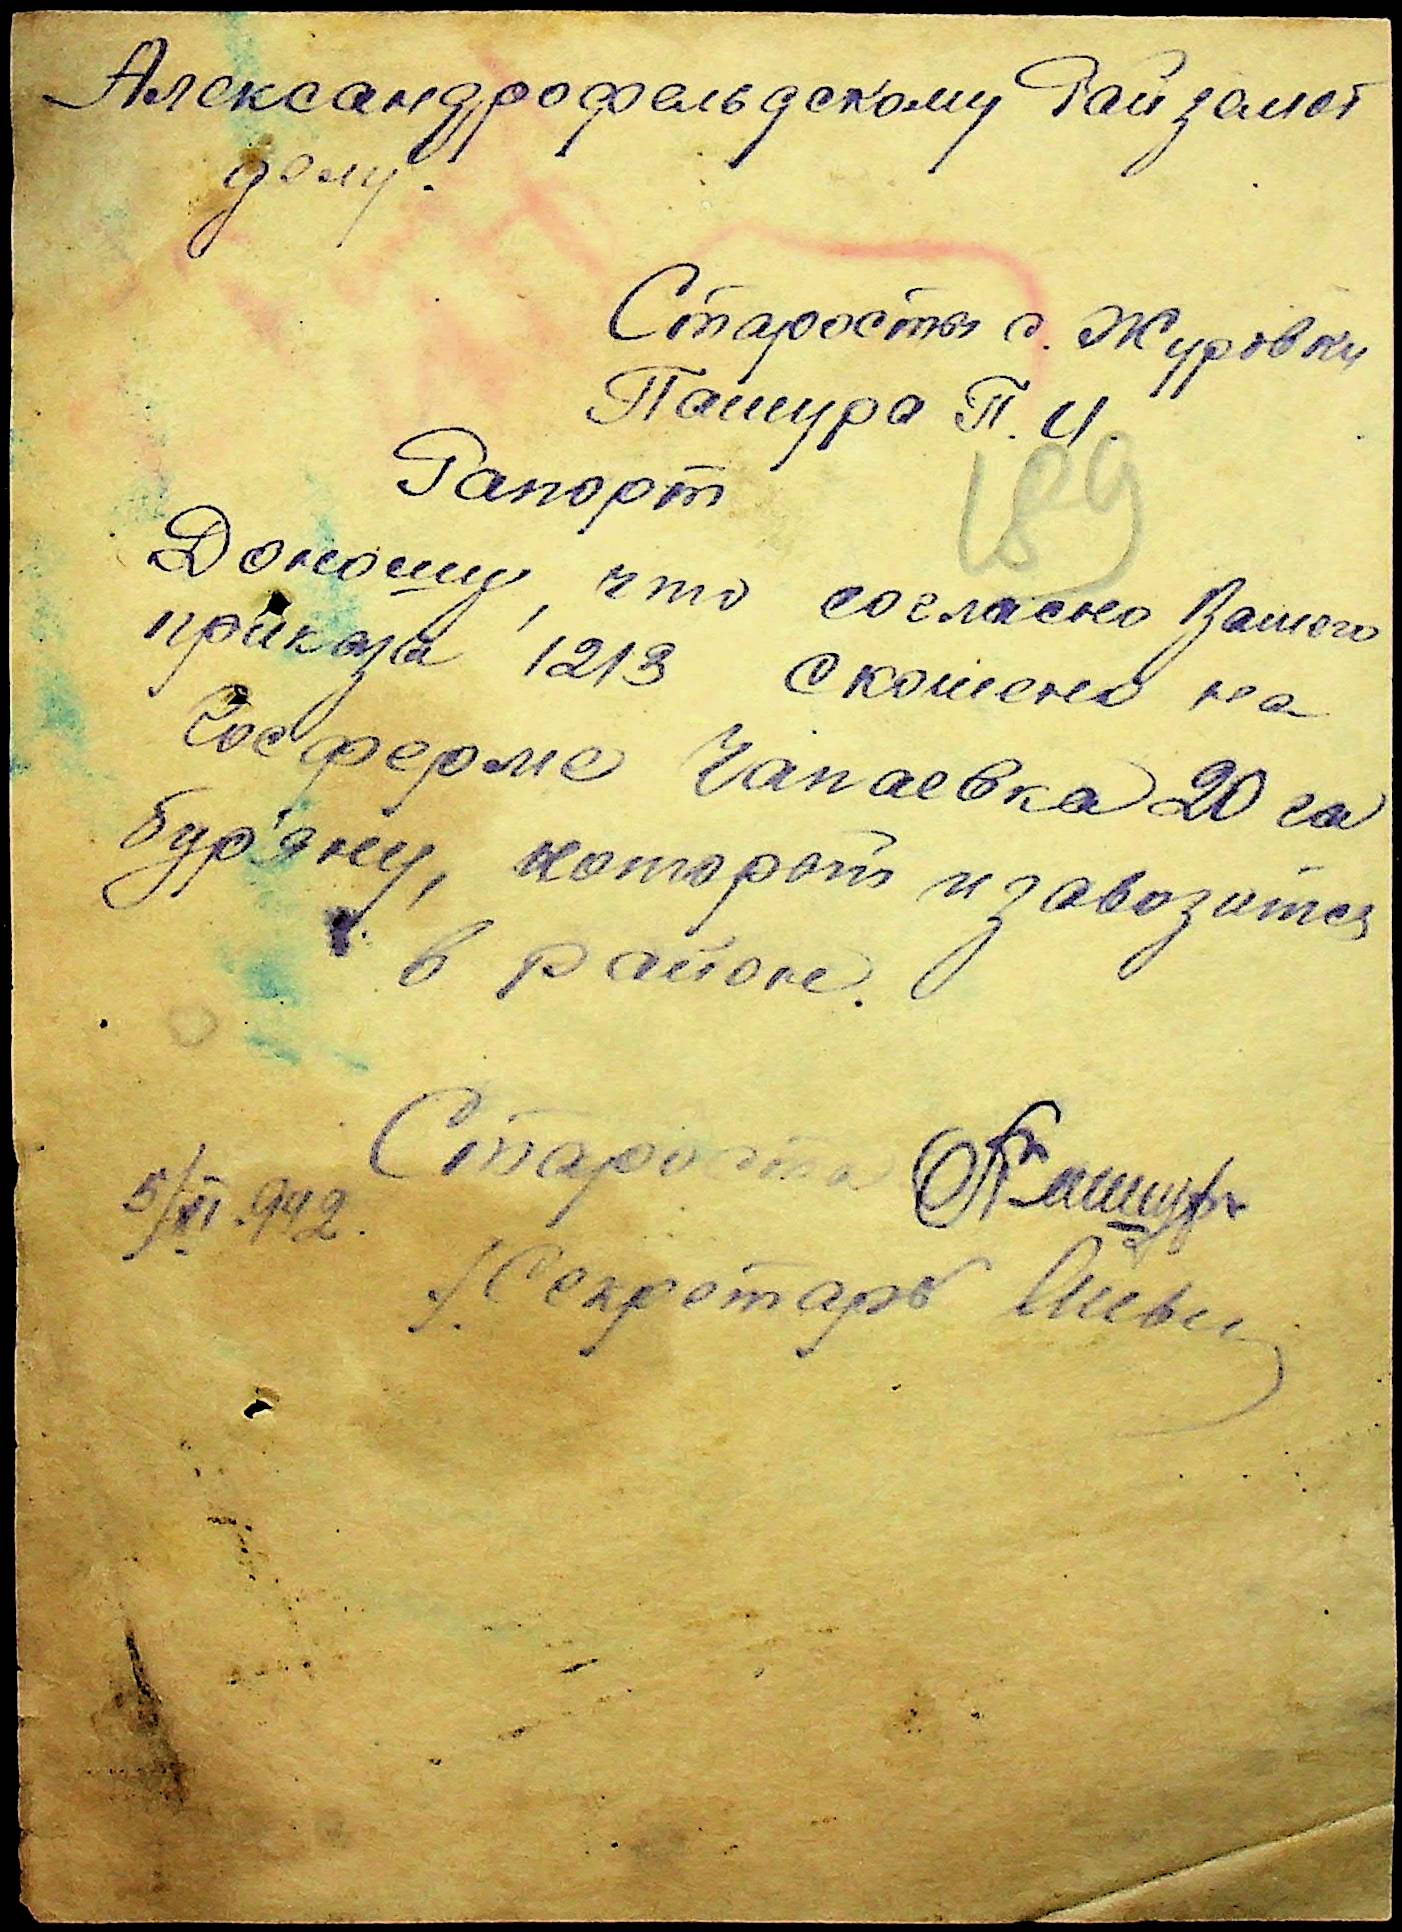 Александрофельдскому Райземот
делу.
Старосты с. Журовки
Пашура П. И.
189
Рапорт
Доношу, что согласно Вашего
приказа 1213 скошено на
Госферме Чапаевка 20 га
бур'яну, который и завозится
в район.
Староста Пашура
5/XI.942.
Секретарь